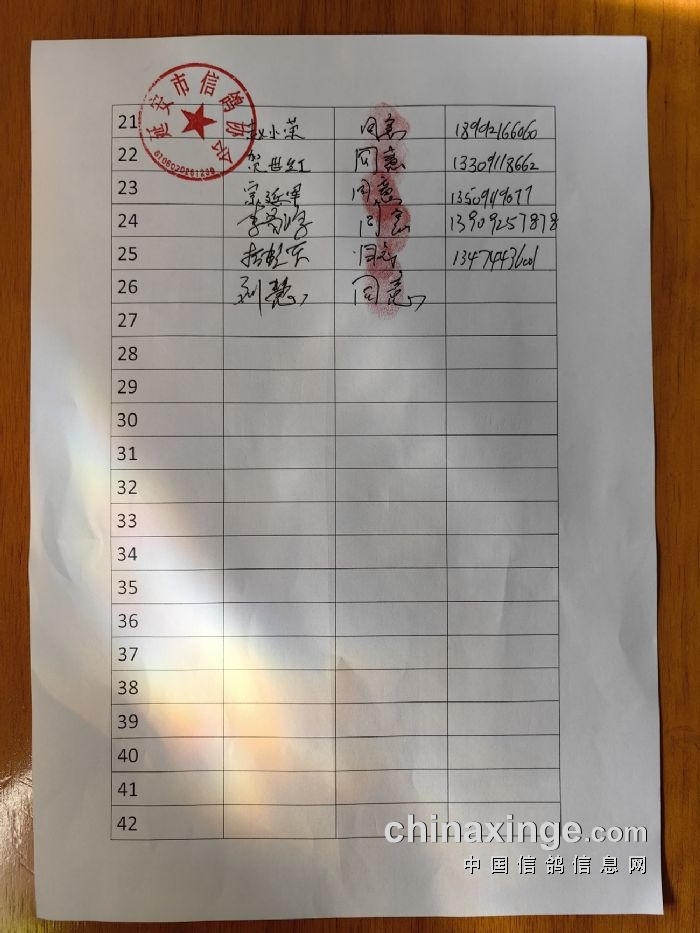 延安市信鸽协会
21 赵小荣 同意 18992166060
22 贺世红 同意 13309118662
23 宗延军 同意
24 李 同意 13909257878
25 同意
26 刘慧 同意
27
28
29
30
31
32
33
34
35
36
37
38
39
40
41
42
chinaxinge.com
中国信鸽信息网